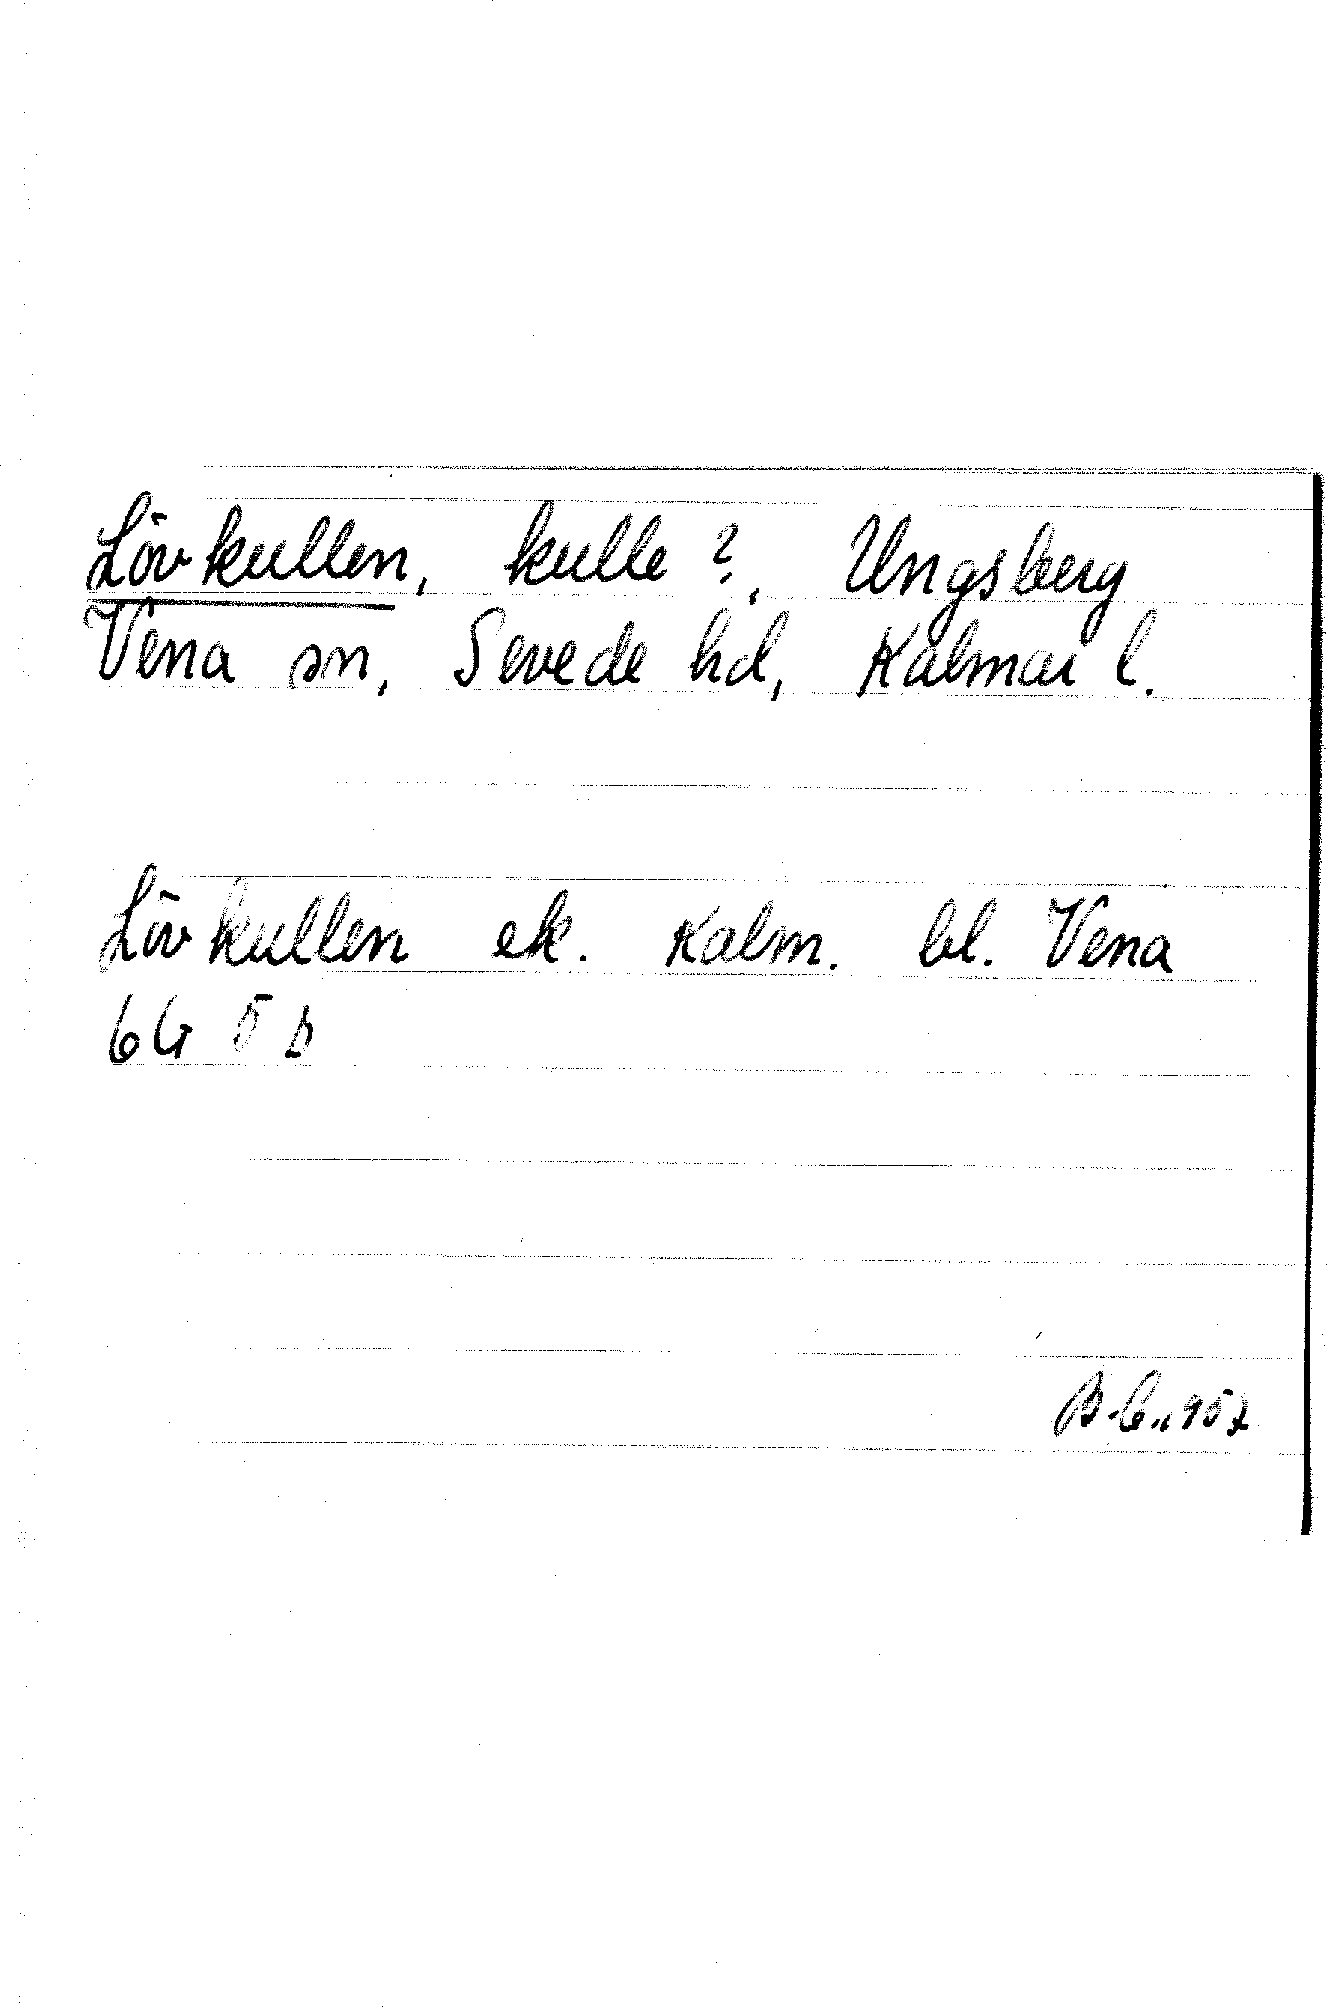 Lövkullen, kulle ?, Ungsberg
Vena sn, Sevede hd, Kalmar l.
Lövkullen ek. Kalm. bl. Vena
6G 5 b